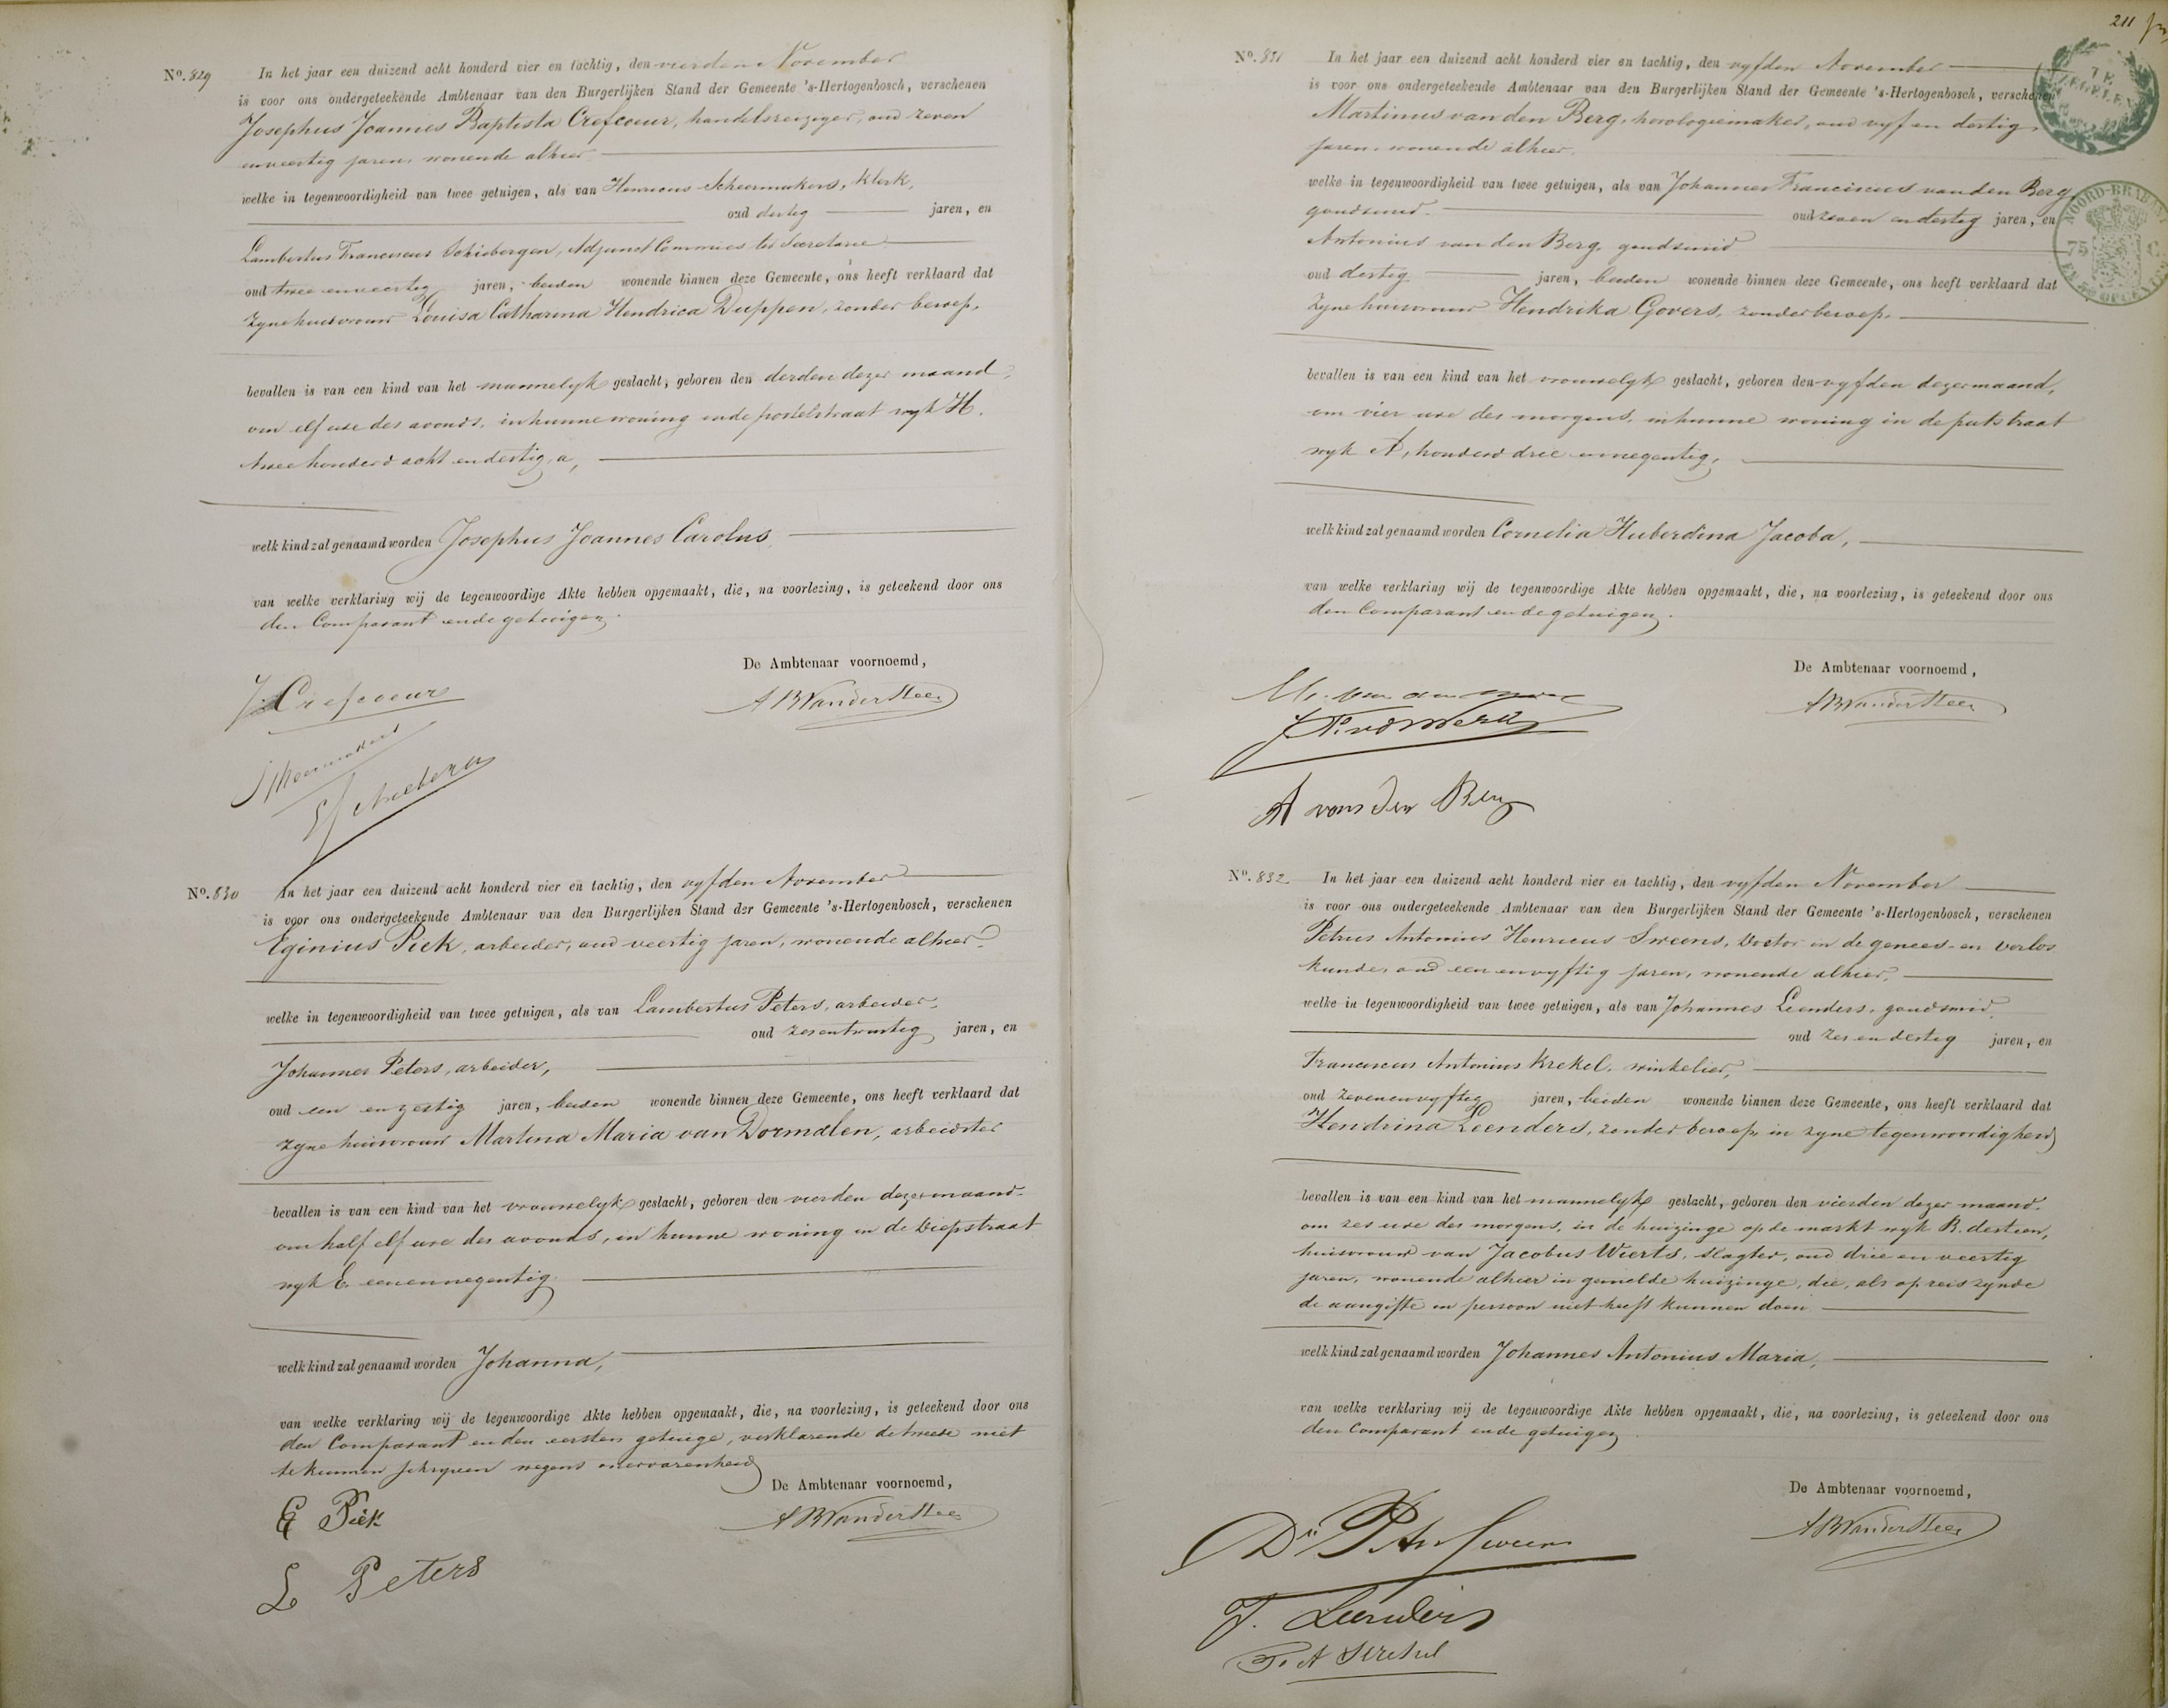 No. 829 In het jaar een duizend acht honderd vier en tachtig, den vierden November
is voor ons ondergeteekende Ambtenaar van den Burgerlijken Stand der Gemeente 's-Hertogenbosch, verschenen
Josephus Joannes Baptista Crefcoeur, handelsreiziger, oud zeven
en veertig jaren, wonende alhier
welke in tegenwoordigheid van twee getuigen, als van Henricus Scheermakers, klerk,
oud dertig jaren, en
Lambertus Franciscus Schiebergen, Adjunct Commies ter Secretarie
oud twee en veertig jaren, beiden wonende binnen deze Gemeente, ons heeft verklaard dat
zyne huisvrouw Louisa Catharina Hendrica Duppen, zonder beroep,
bevallen is van een kind van het mannelyk geslacht, geboren den derden dezer maand,
om elf ure des avonds, in hunne woning in de postelstraat wyk H.
twee honderd acht en dertig, a,
welk kind zal genaamd worden Josephus Joannes Carolus
van welke verklaring wij de tegenwoordige Akte hebben opgemaakt, die, na voorlezing, is geteekend door ons
den Comparant en de getuigen.
De Ambtenaar voornoemd,
J. Crefcoeur
A B Vander Steen
Scheermakers
No. 830 In het jaar een duizend acht honderd vier en tachtig, den vyfden November
is voor ons ondergeteekende Ambtenaar van den Burgerlijken Stand der Gemeente 's-Hertogenbosch, verschenen
Eginius Piek, arbeider, oud veertig jaren, wonende alhier
welke in tegenwoordigheid van twee getuigen, als van Lambertus Peters, arbeider,
oud zesentwintig jaren, en
Johannes Peters, arbeider,
oud een en zestig jaren, beiden wonende binnen deze Gemeente, ons heeft verklaard dat
zyne huisvrouw Martina Maria van Dormalen, arbeidster
bevallen is van een kind van het vrouwelyk geslacht, geboren den vierden dezer maand.
om half elf ure des avonds, in hunne woning in de Diepstraat
wyk E. eenennegentig
welk kind zal genaamd worden Johanna,
van welke verklaring wij de tegenwoordige Akte hebben opgemaakt, die, na voorlezing, is geteekend door ons
den Comparant en den eersten getuige, verklarende de tweede niet
te kunnen schryven wegens onervarenheid
De Ambtenaar voornoemd,
E Piek
A B Vander Steen
L Peters
211
No. 831 In het jaar een duizend acht honderd vier en tachtig, den vyfden November
is voor ons ondergeteekende Ambtenaar van den Burgerlijken Stand der Gemeente 's-Hertogenbosch, verschenen
Martinus van den Berg, horologiemaker, oud vyf en dertig
jaren, wonende alhier.
welke in tegenwoordigheid van twee getuigen, als van Johannes Franciscus van den Berg
goudsmid. oud zeven en dertig jaren, en
Antonius van den Berg, goudsmid
oud dertig jaren, beiden wonende binnen deze Gemeente, ons heeft verklaard dat
zyne huisvrouw Hendrika Govers, zonder beroep,
bevallen is van een kind van het vrouwelyk geslacht, geboren den vyfden dezer maand,
om vier ure des morgens, in hunne woning in de putstraat
wyk A, honderd drie ennegentig,
welk kind zal genaamd worden Cornelia Huberdina Jacoba,
van welke verklaring wij de tegenwoordige Akte hebben opgemaakt, die, na voorlezing, is geteekend door ons
den Comparant en de getuigen.
De Ambtenaar voornoemd,
A B Vander Steen
A van den Berg
No. 832 In het jaar een duizend acht honderd vier en tachtig, den vyfden November
is voor ons ondergeteekende Ambtenaar van den Burgerlijken Stand der Gemeente 's-Hertogenbosch, verschenen
Petrus Antonius Henricus Sweens, Doctor in de genees- en verlos
kunde, oud een en vyftig jaren, wonende alhier,
welke in tegenwoordigheid van twee getuigen, als van Johannes Leenders, goudsmid,
oud zes en dertig jaren, en
Franciscus Antonius Krekel, winkelier,
oud zevenenvyftig jaren, beiden wonende binnen deze Gemeente, ons heeft verklaard dat
Hendrina Leenders, zonder beroep, in zyne tegenwoordigheid
bevallen is van een kind van het mannelyk geslacht, geboren den vierden dezer maand.
om zes ure des morgens, in de huizinge op de markt wyk B. dertien,
huisvrouw van Jacobus Wierts, slagter, oud drie en veertig
jaren, wonende alhier in gemelde huizinge, die, als op reis zynde
de aangifte in persoon niet heeft kunnen doen
welk kind zal genaamd worden Johannes Antonius Maria,
van welke verklaring wij de tegenwoordige Akte hebben opgemaakt, die, na voorlezing, is geteekend door ons
den Comparant en de getuigen
De Ambtenaar voornoemd,
A B Vander Steen
Dr. P A H Sweens
J. Leenders
F. A Krekel